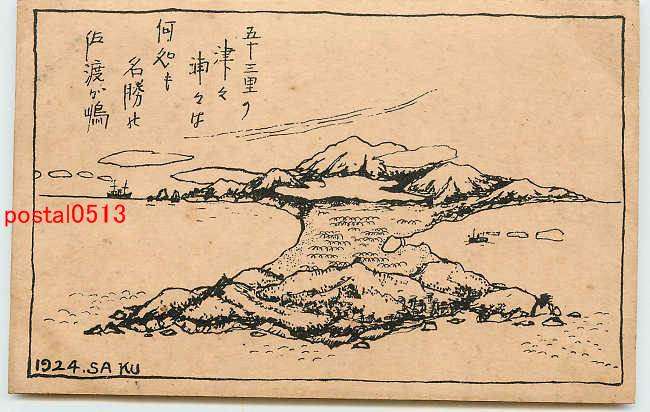 五十三里の
津々
浦々は
何処も
名勝の
佐渡が嶋
postal0513
1924. SAKU